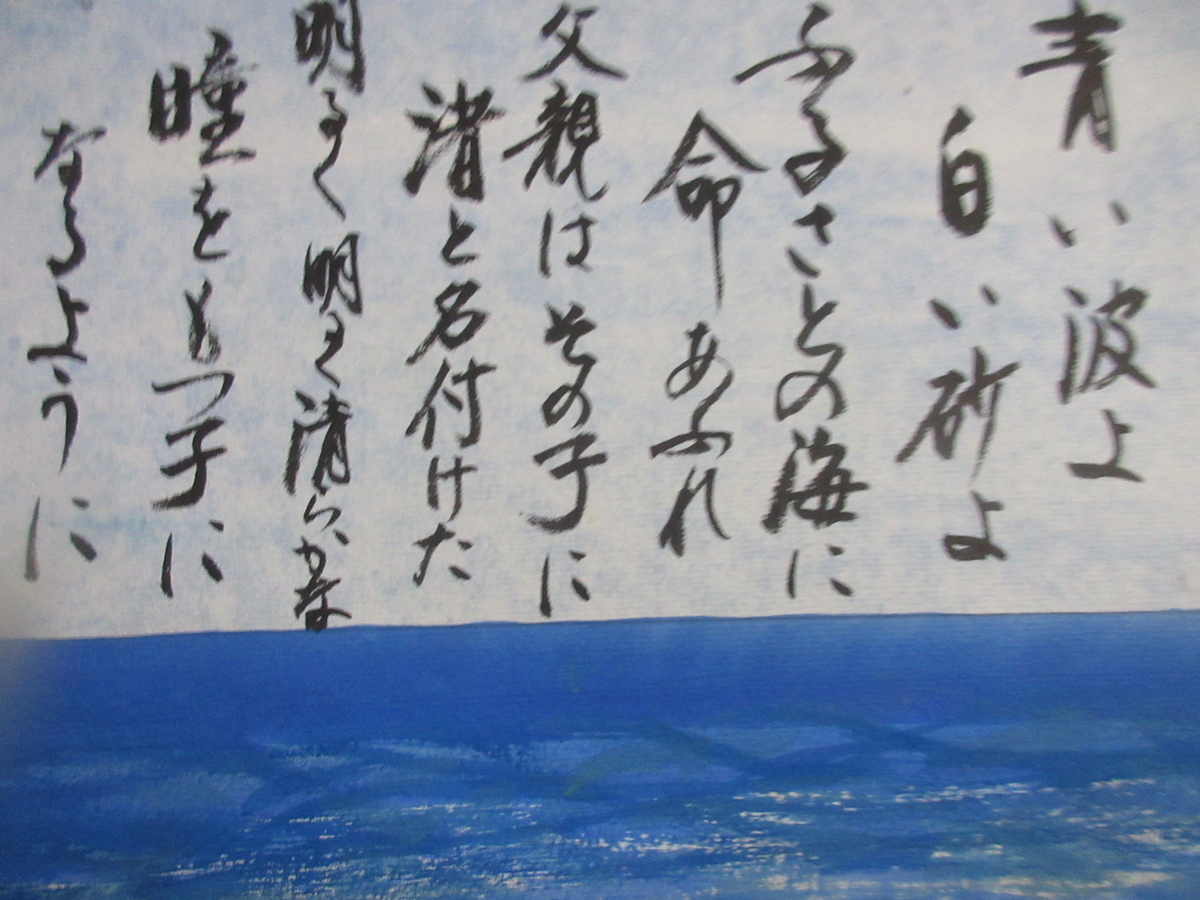 青い波よ
白い砂よ
ふるさとの海に
命あふれ
父親はその子に
渚と名付けた
明るく明るく清らかな
瞳をもつ子に
なるように